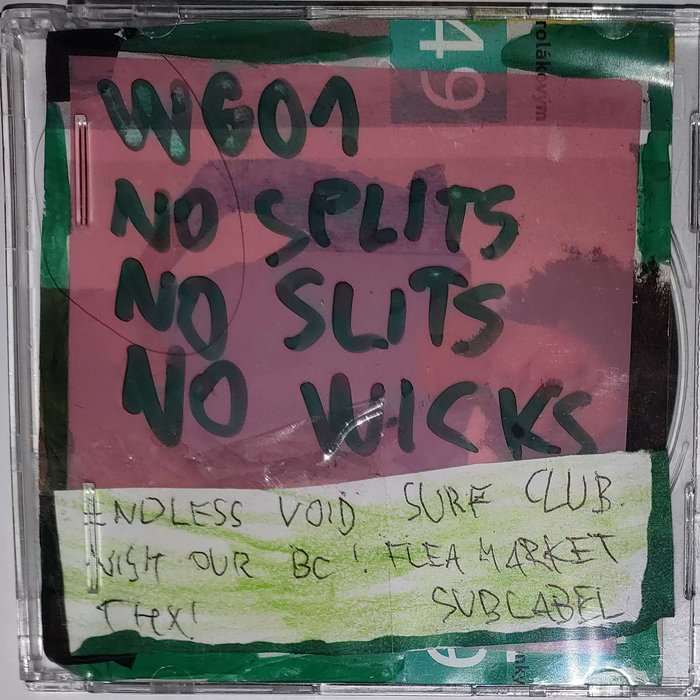 49
rolákovým
WG01
NO SPLITS
NO SLITS
NO WICKS
ENDLESS VOID SURF CLUB.
VISIT OUR BC! FLEA MARKET
THX! SUBLABEL
nky